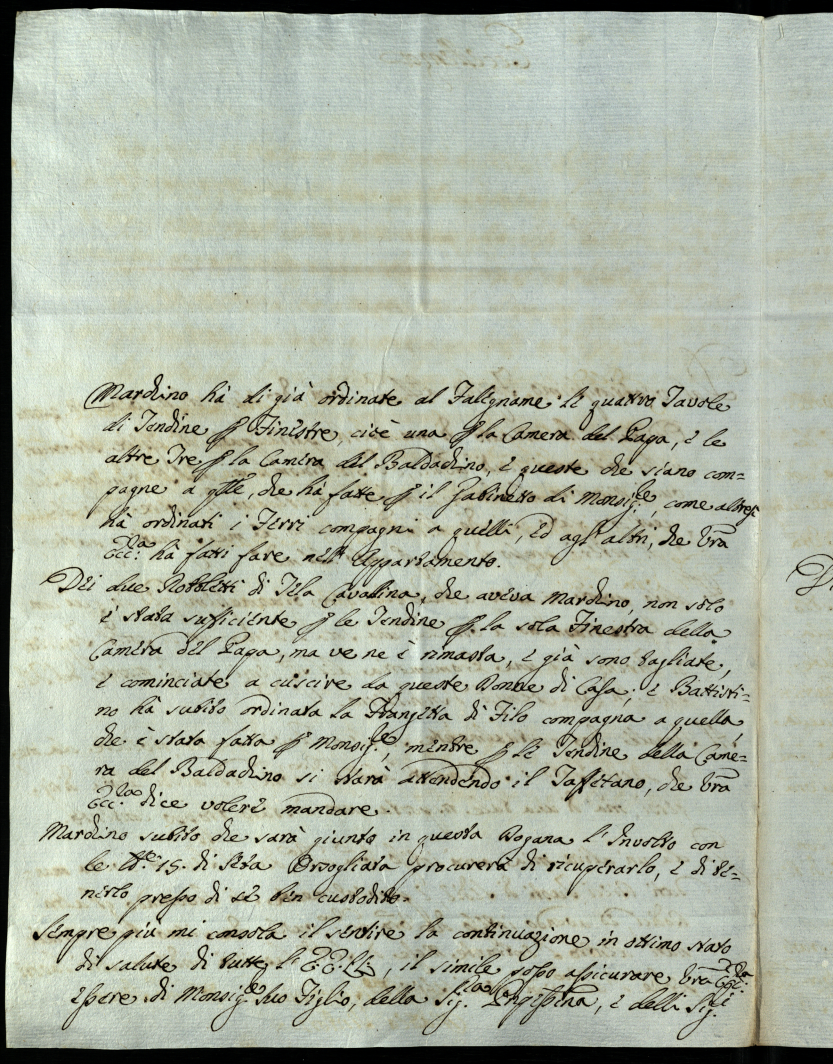 Marchino hà di già ordinate al Falegname le quattro Tavole
di Tendine p Finestre, cioè una p la Camera del Papa, e le
altre Tre p la Camera del Baldachino, e queste che siano com=
pagne a qlle, che hà fatte p il Gabinetto di Monsig.re, come altresì
hà ordinati i Ferri compagni a quelli, ed agl' altri, che Vra
Ecc.za hà fatti fare nell' Appartamento.
Dei due Rotoletti di Tela Cavallina, che aveva Marchino, non solo
è stata sufficiente p le Tendine p la sola Finestra della
Camera del Papa, ma ve ne è rimasta, e già sono tagliate,
e cominciate a cuscire da queste Donne di Casa; e Battisti=
no hà subito ordinata la Frangetta di Filo compagna a quella,
che è stata fatta p Monsig.re, mentre p le Tendine della Came=
ra del Baldachino si starà attendendo il Taffetano, che Vra
Ecc.za dice volere mandare.
Marchino subito che sarà giunto in questa Dogana l' Involto con
le lb.e 15. di Seta Orsogliata procurerà di ricuperarlo, e di te=
nerlo presso di se ben custodito.
Sempre più mi consola il sentire la continuazione in ottimo stato
di salute di tutte l' E.E. , il simile posso assicurare Vra Ecc.za
essere di Monsig.re suo Figlio, della Sig.ra , e delli Sig.i